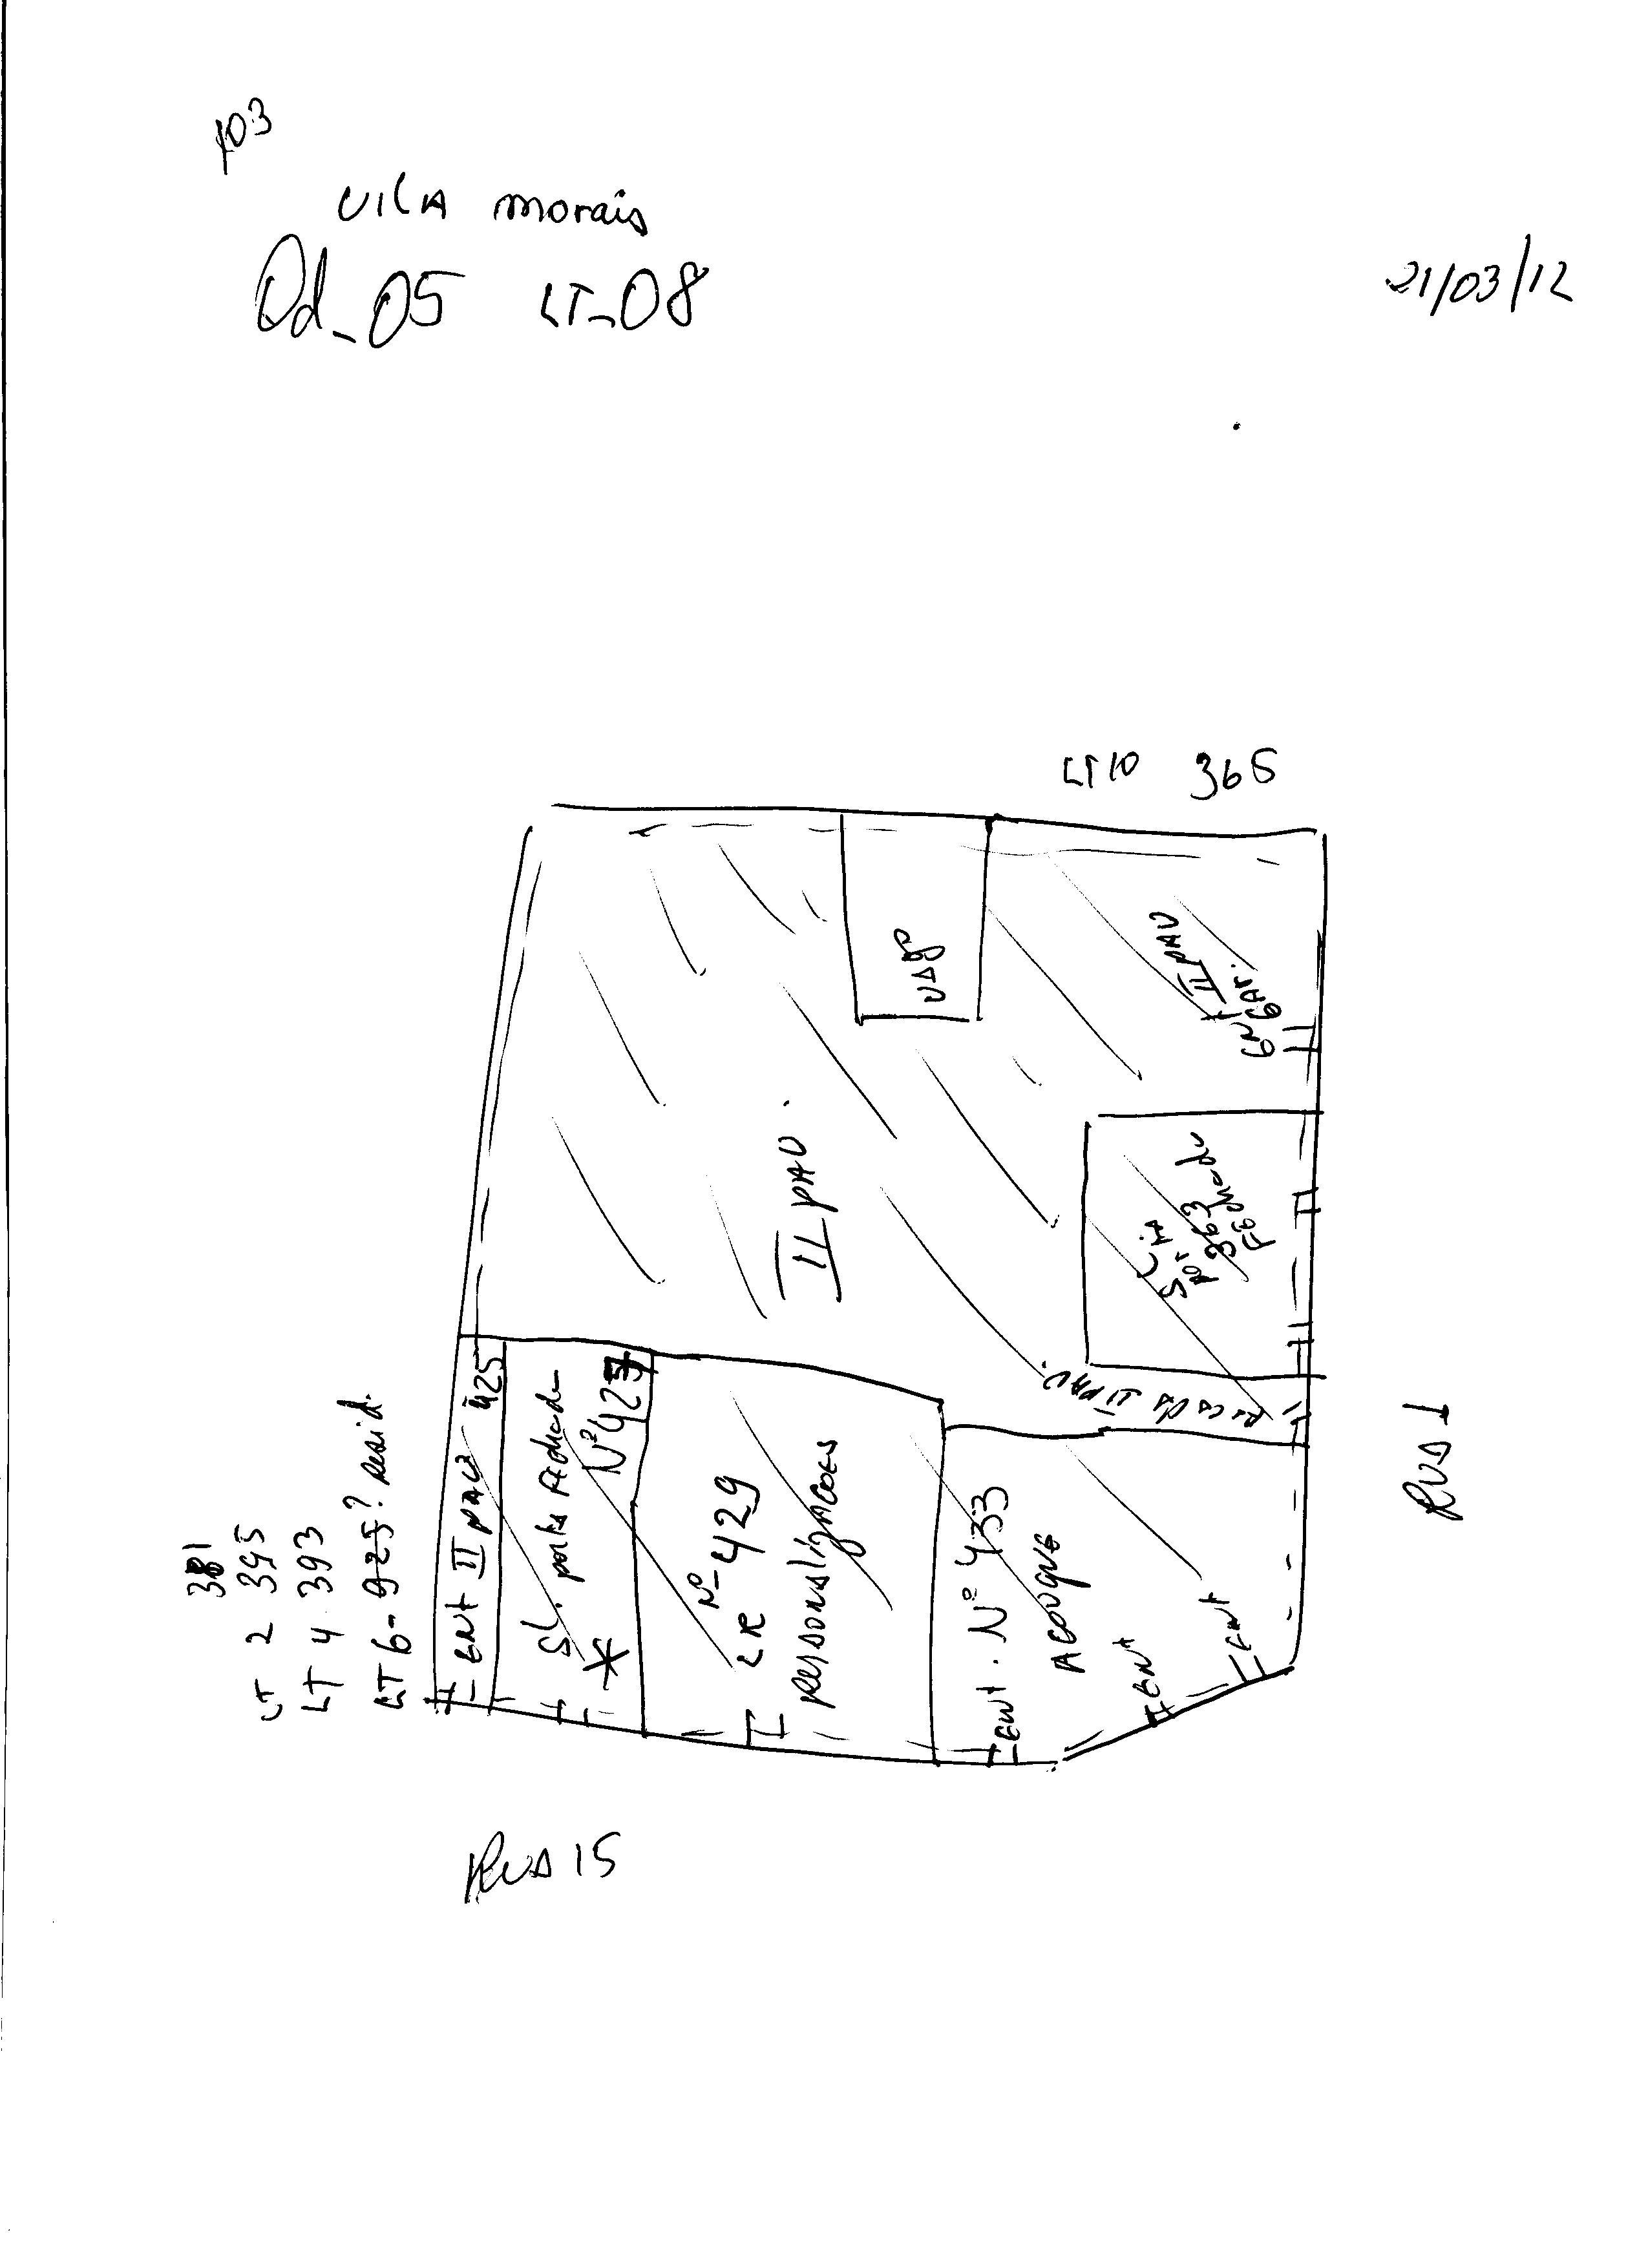 103
VILA morais
Qd_05 LT_08
21/03/12
LT10 365
VAgo
II PAV
ENt GAr.
II PAV.
SL
Nº 363
Fechado
II PAV.
381
LT 2 395
LT 4 393
LT 6- 925? Resid.
ENt II PAV 425
SL. porta Fechada
Nº 427
Nº 429
LR
personalizacoes
ENt. Nº 433
Acougue
ENt
ENt
RUA 1
RUA 15